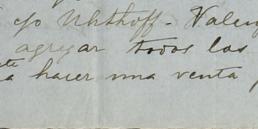 c/o Uhthoff - Valen
agregar todos los
a hacer una venta